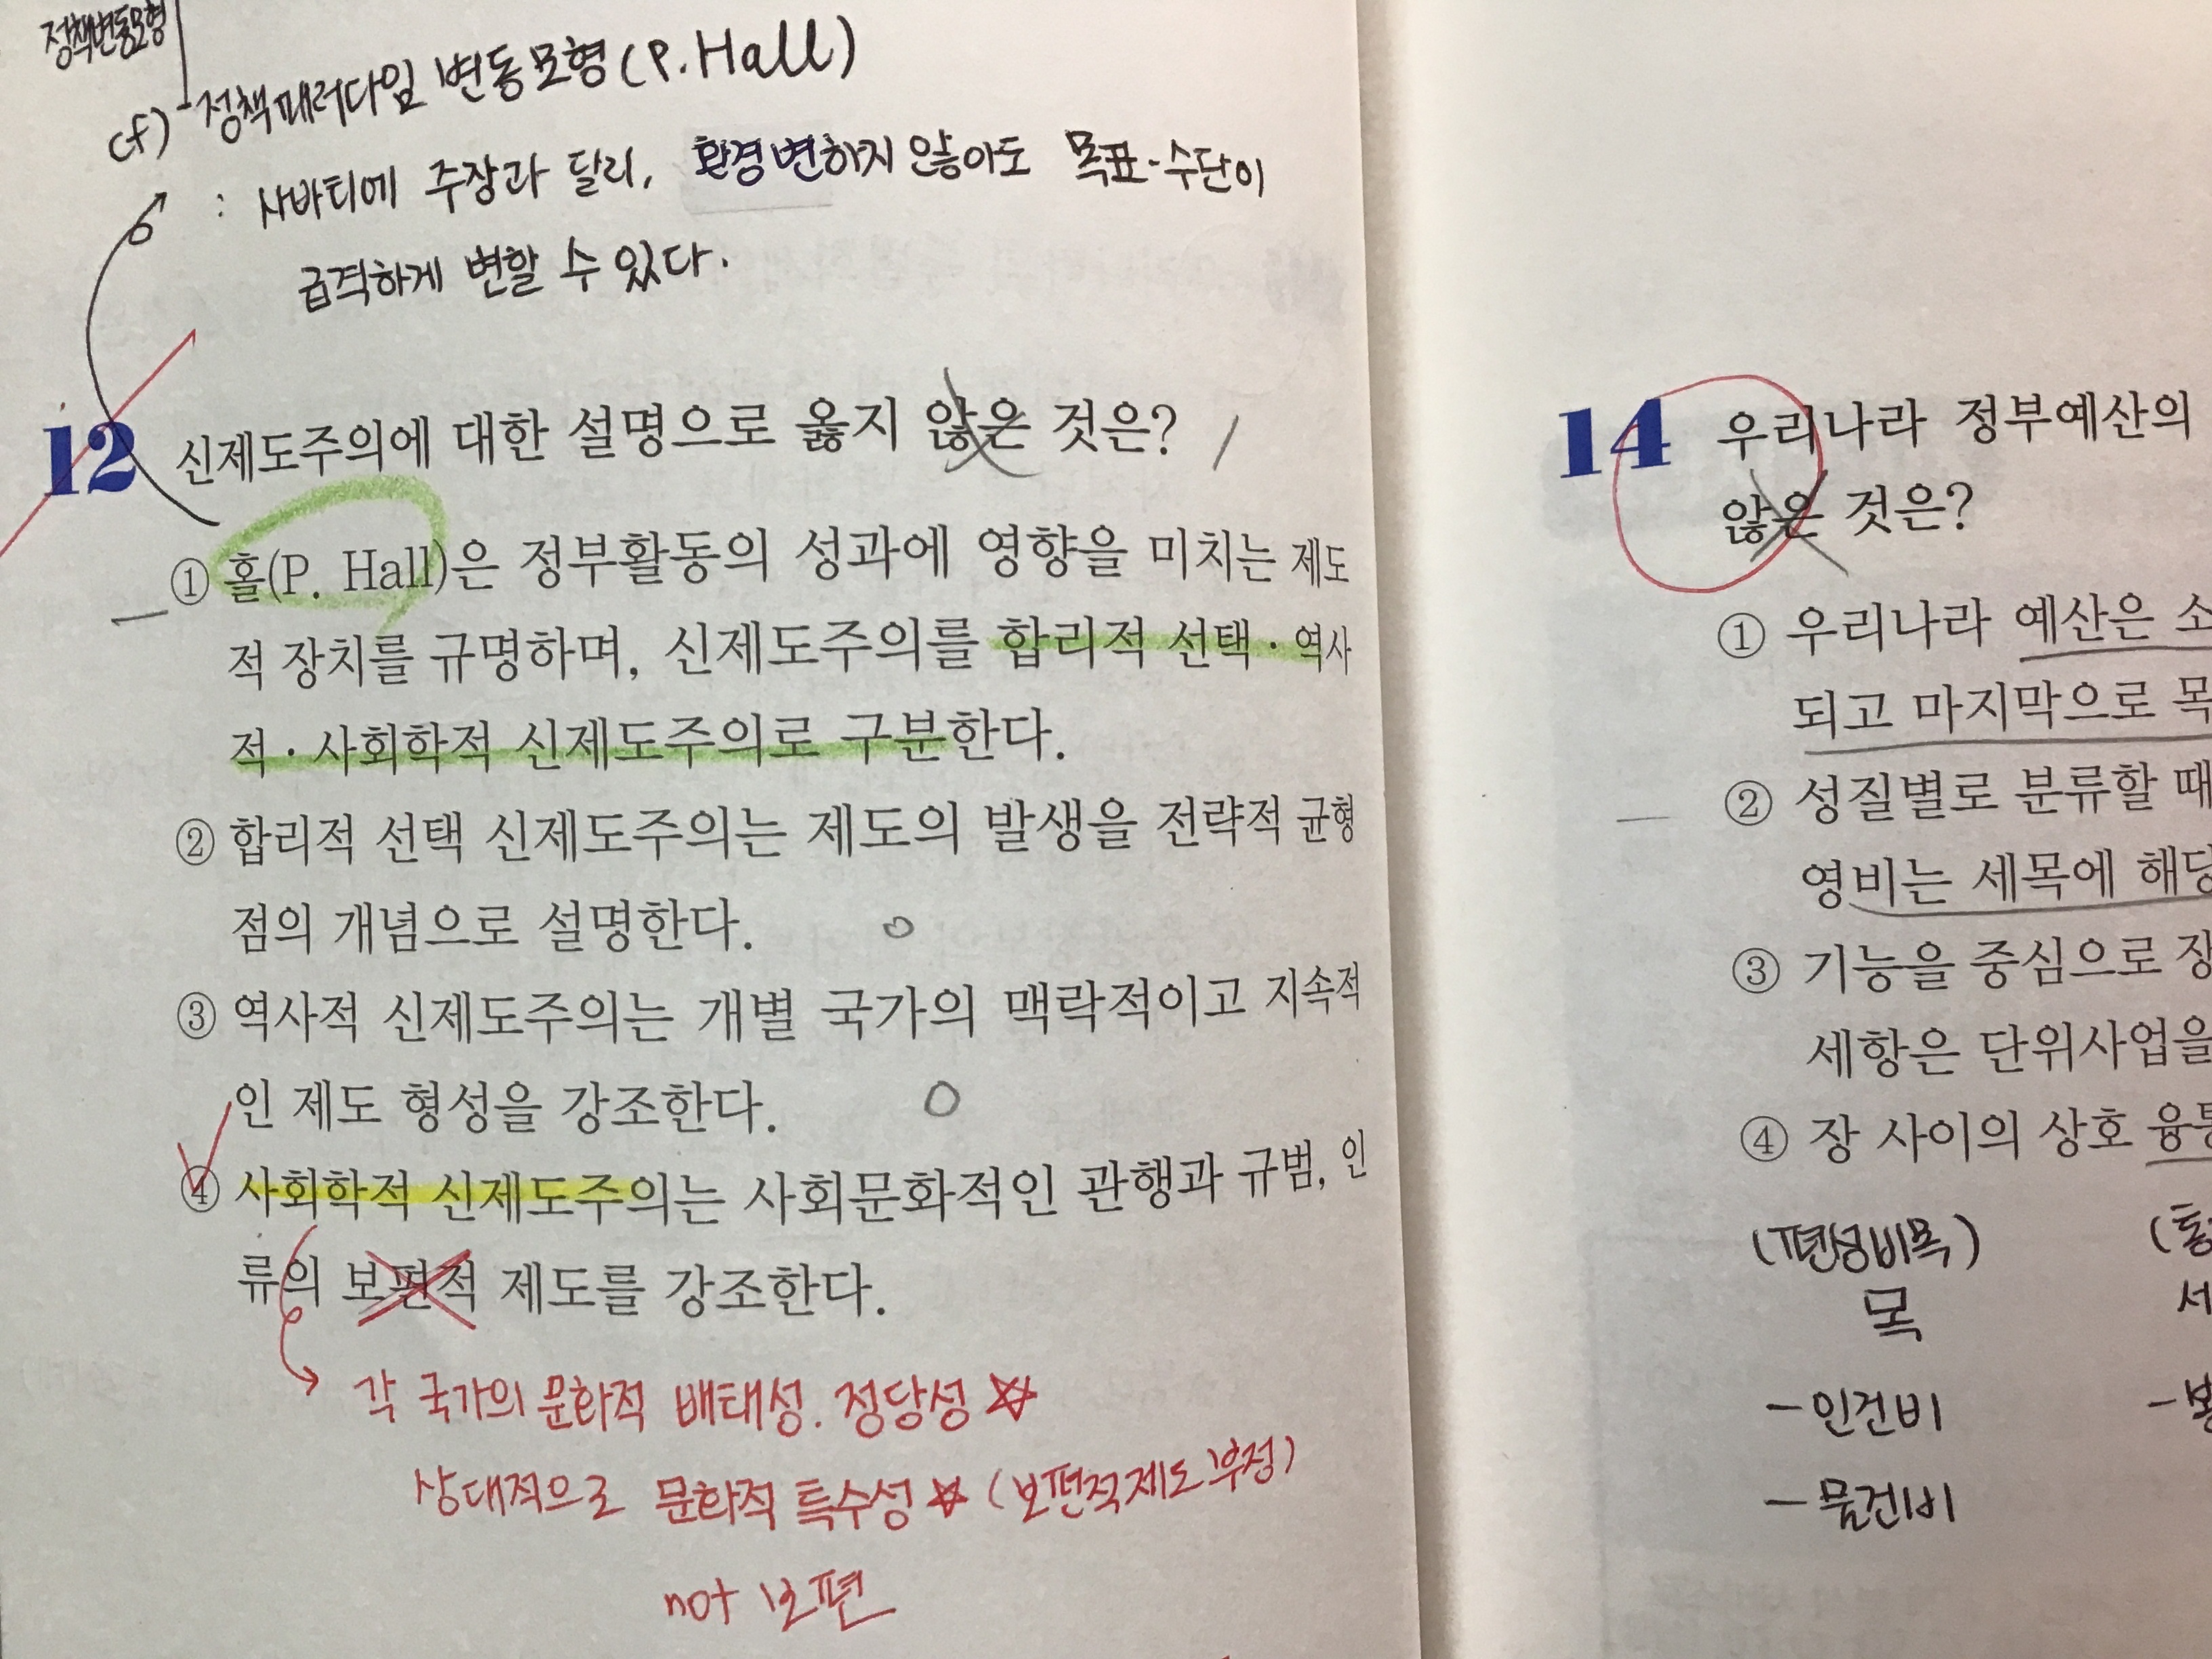 정책변동모형
cf) 정책패러다임 변동모형(P. Hall)
: 사바티에 주장과 달리, 환경변하지 않아도 목표-수단이
급격하게 변할 수 있다.
12 신제도주의에 대한 설명으로 옳지 않은 것은?
① 홀(P. Hall)은 정부활동의 성과에 영향을 미치는 제도
적 장치를 규명하며, 신제도주의를 합리적 선택·역사
적·사회학적 신제도주의로 구분한다.
② 합리적 선택 신제도주의는 제도의 발생을 전략적 균형
점의 개념으로 설명한다.
③ 역사적 신제도주의는 개별 국가의 맥락적이고 지속적
인 제도 형성을 강조한다.
④ 사회학적 신제도주의는 사회문화적인 관행과 규범, 인
류의 보편적 제도를 강조한다.
각 국가의 문화적 배태성. 정당성 ☆
상대적으로 문화적 특수성 ☆ (보편적제도 부정)
not 보편
14 우리나라 정부예산의
않은 것은?
① 우리나라 예산은 소
되고 마지막으로 목
② 성질별로 분류할 때
영비는 세목에 해당
③ 기능을 중심으로 장
세항은 단위사업을
④ 장 사이의 상호 융통
(편성비목) (통
목 세
-인건비
-물건비